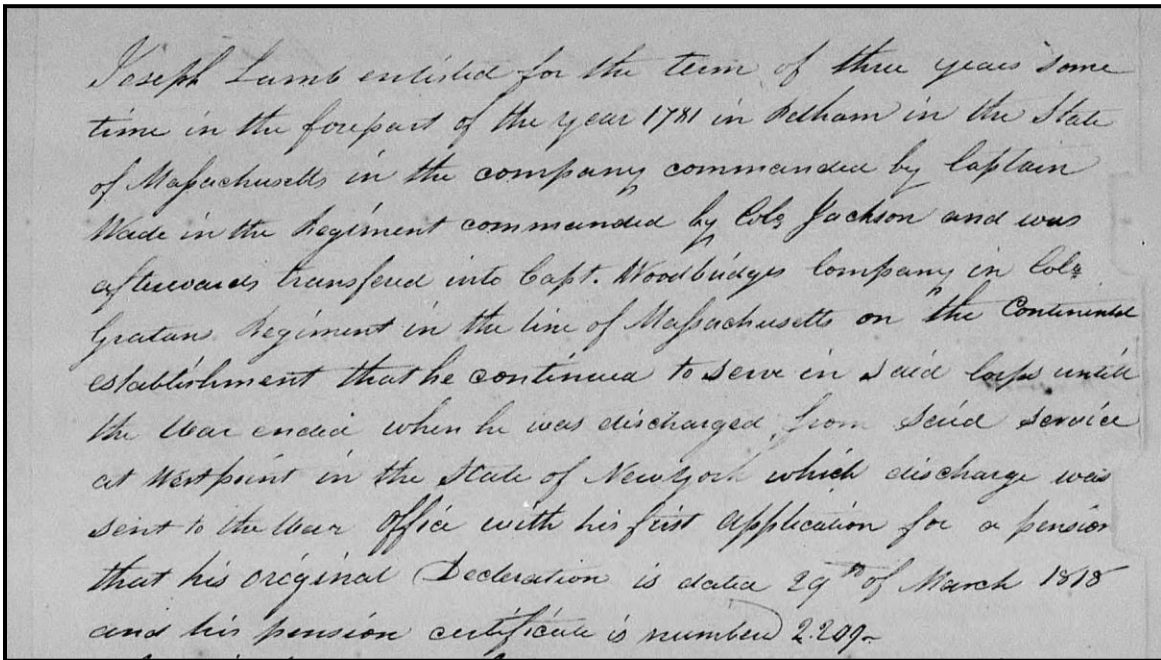 Joseph Lamb enlisted for the term of three years some
time in the forepart of the year 1781 in Pelham in the State
of Massachusetts in the company commanded by Captain
Wade in the Regiment commanded by Colo Jackson and was
afterwards transfered into Capt. Woodbridges Company in Colo
Gratans Regiment in the line of Massachusetts on the Continental
establishment that he continued to serve in said Corps untill
the War ended when he was discharged from said service
at Westpoint in the State of New York which discharge was
sent to the War Office with his first application for a pension
that his original Decleration is dated 29th of March 1818
and his pension certificate is number 2.209-